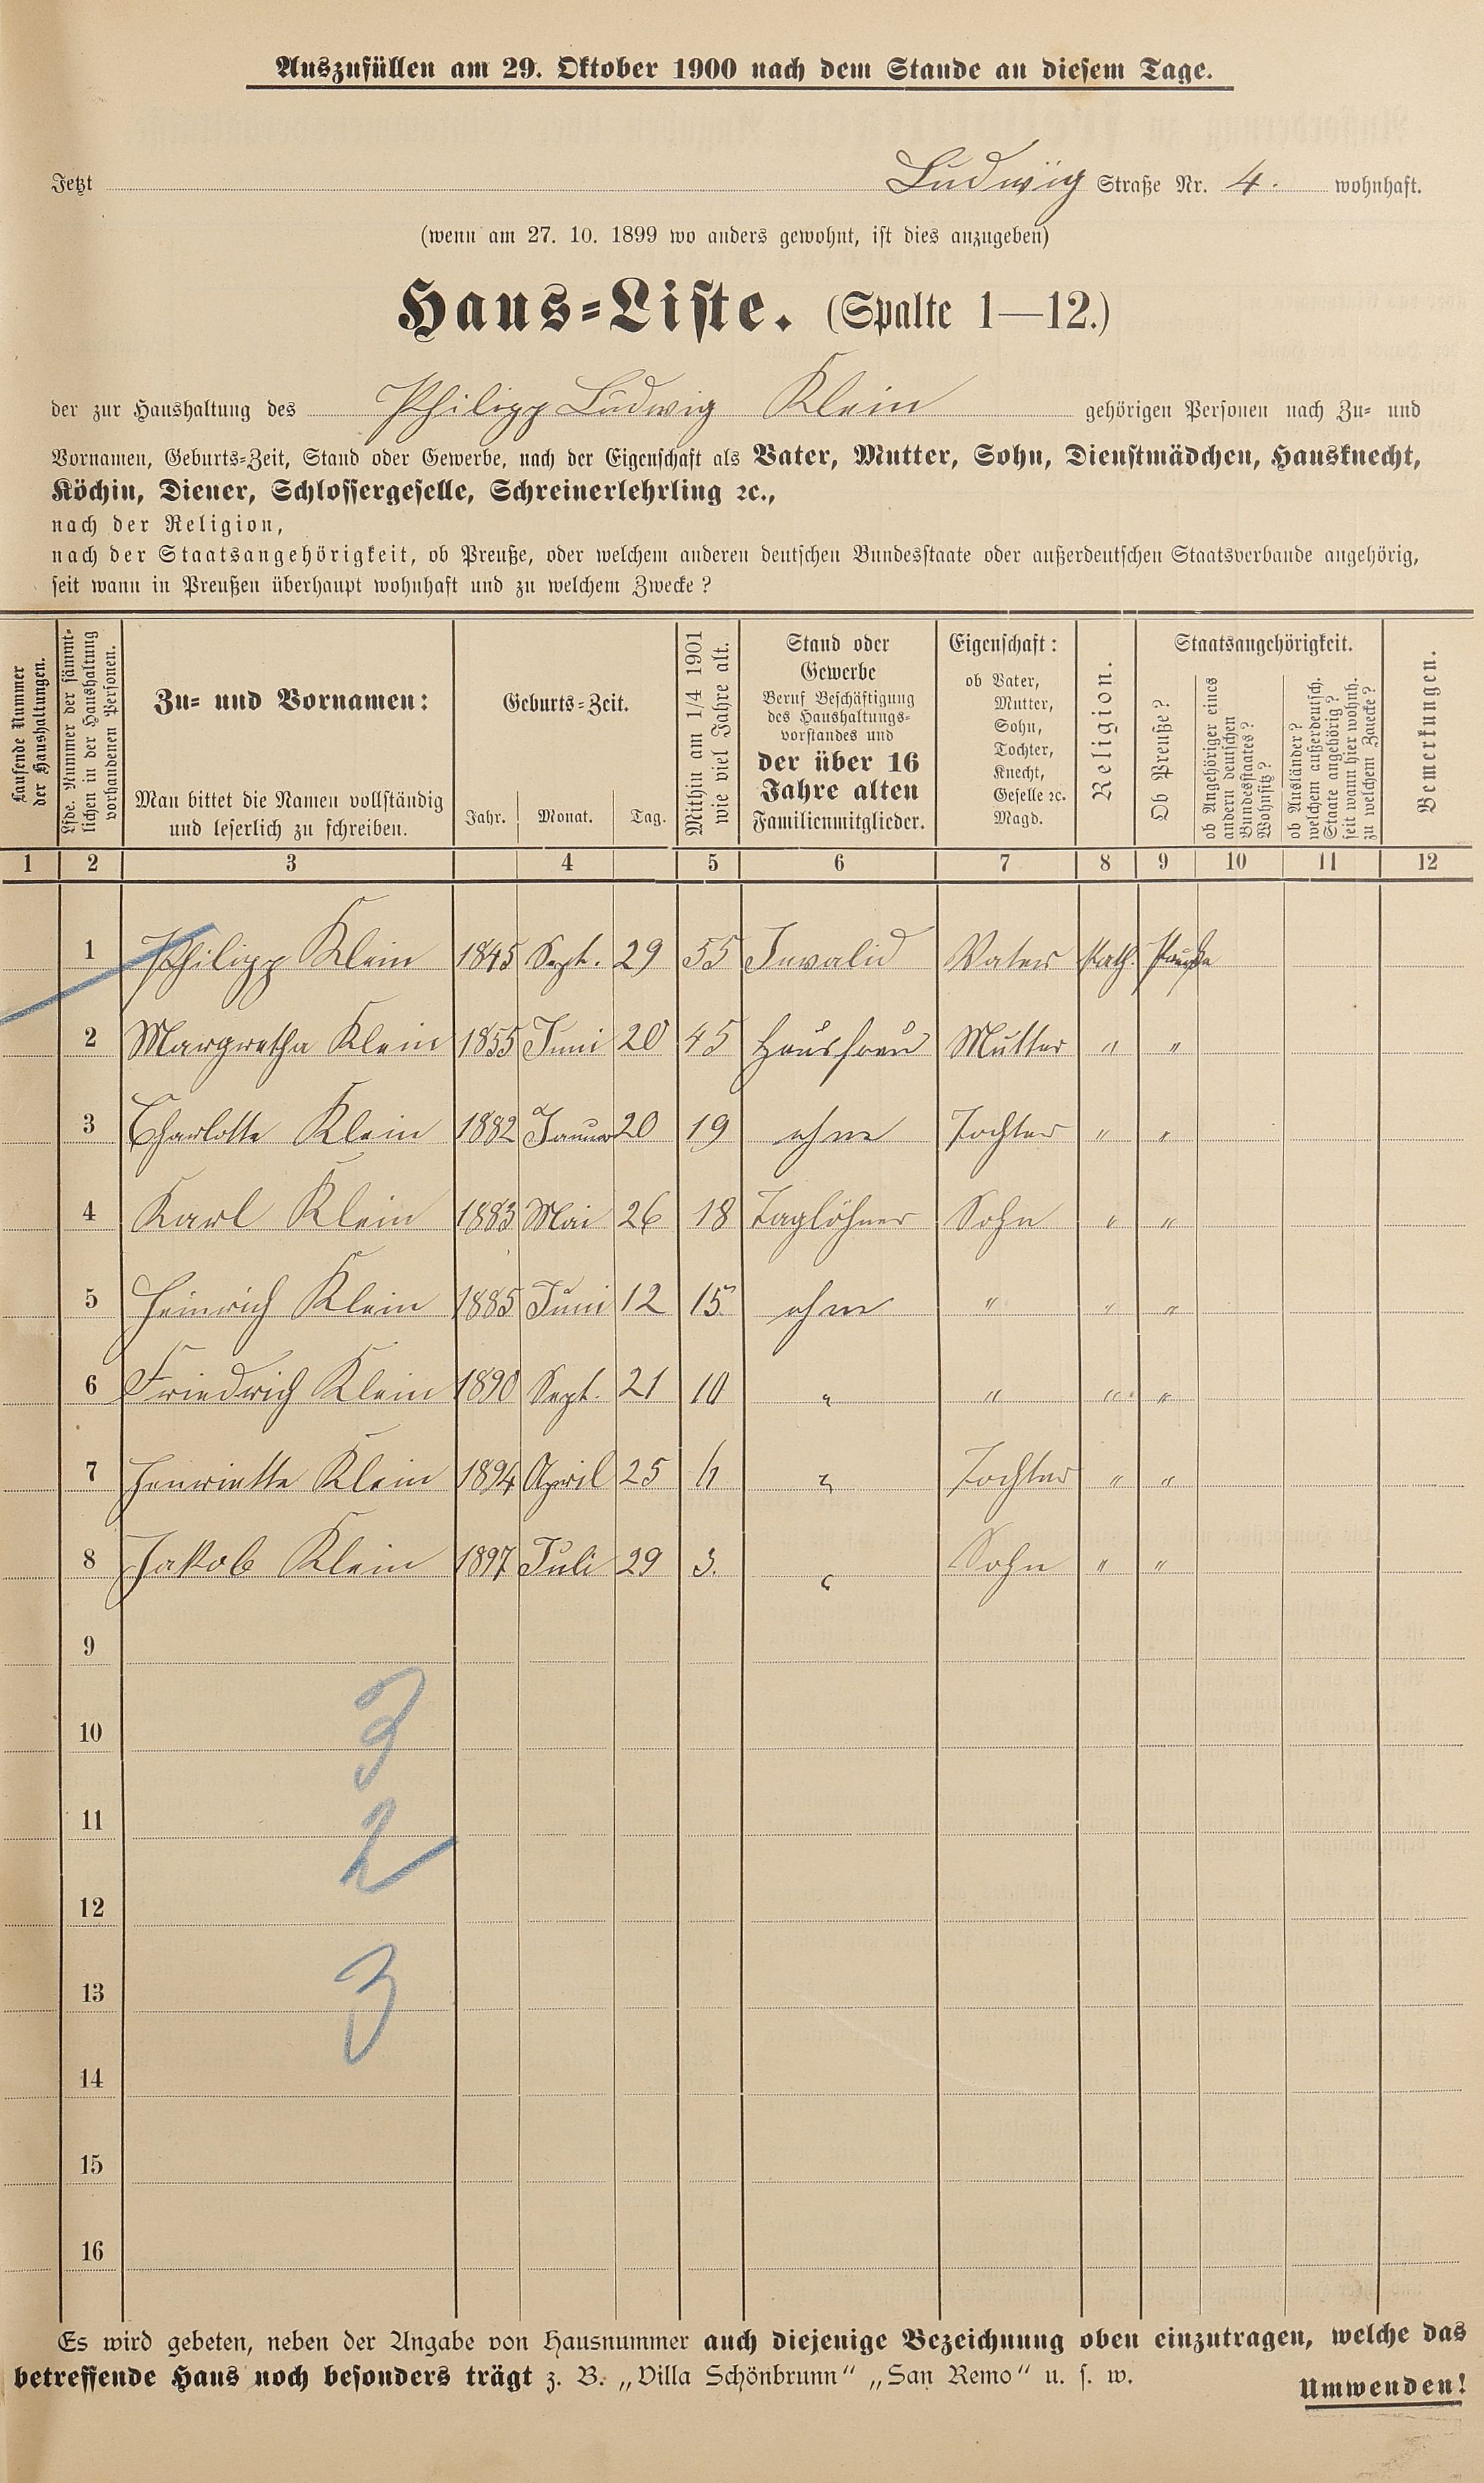 Auszufüllen am 29. Oktober 1900 nach dem Stande an diesem Tage.
Jetzt Ludwig Straße Nr. 4. wohnhaft.
(wenn am 27. 10. 1899 wo anders gewohnt, ist dies anzugeben)
Haus-Liste. (Spalte 1—12.)
der zur Haushaltung des Philipp Ludwig Klein gehörigen Personen nach Zu- und
Vornamen, Geburts-Zeit, Stand oder Gewerbe, nach der Eigenschaft als Vater, Mutter, Sohn, Dienstmädchen, Hausknecht,
Köchin, Diener, Schlossergeselle, Schreinerlehrling ꝛc.,
nach der Religion,
nach der Staatsangehörigkeit, ob Preuße, oder welchem anderen deutschen Bundesstaate oder außerdeutschen Staatsverbande angehörig,
seit wann in Preußen überhaupt wohnhaft und zu welchem Zwecke?
Laufende Nummer
der Haushaltungen.
Lfde. Nummer der sämmt-
lichen in der Haushaltung
vorhandenen Personen.
Zu- und Vornamen:
Man bittet die Namen vollständig
und leserlich zu schreiben.
Geburts-Zeit.
Jahr. Monat. Tag.
Mithin am 1/4 1901
wie viel Jahre alt.
Stand oder
Gewerbe
Beruf Beschäftigung
des Haushaltungs-
vorstandes und
der über 16
Jahre alten
Familienmitglieder.
Eigenschaft:
ob Vater,
Mutter,
Sohn,
Tochter,
Knecht,
Geselle ꝛc.
Magd.
Religion.
Staatsangehörigkeit.
Ob Preuße?
ob Angehöriger eines
andern deutschen
Bundesstaates?
Wohnsitz?
ob Ausländer?
welchem außerdeutsch.
Staate angehörig?
seit wann hier wohnh.
zu welchem Zwecke?
Bemerkungen.
1 2 3 4 5 6 7 8 9 10 11 12
1 Philipp Klein 1845 Sept. 29 55 Invalid Vater Kath. Preuße
2 Margretha Klein 1855 Juni 20 45 Hausfrau Mutter " "
3 Charlotte Klein 1882 Januar 20 19 ohne Tochter " "
4 Karl Klein 1883 Mai 26 18 Taglöhner Sohn " "
5 Heinrich Klein 1885 Juni 12 15 ohne " " "
6 Friedrich Klein 1890 Sept. 21 10 " " " "
7 Henriette Klein 1894 April 25 6 " Tochter " "
8 Jakob Klein 1897 Juli 29 3. " Sohn " "
9
10
11
12
13
14
15
16
2
3
Es wird gebeten, neben der Angabe von Hausnummer auch diejenige Bezeichnung oben einzutragen, welche das
betreffende Haus noch besonders trägt z. B. „Villa Schönbrunn“ „San Remo“ u. s. w.
Umwenden!